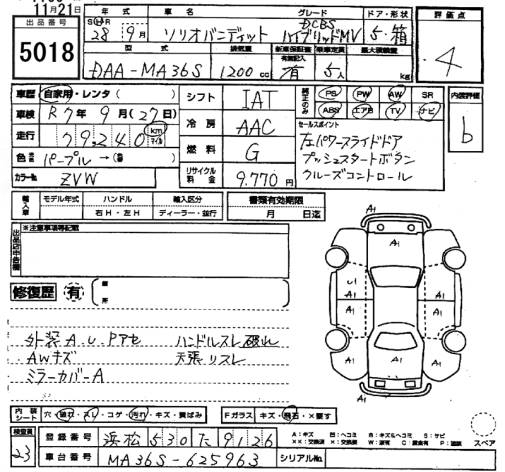 11月21日
出品番号
5018
年式 車名 グレード ドア・形状
28年9月 ソリオバンディット DCBS ハイブリッドMV 5・箱
評価点
4
型式 排気量 新車保証書 乗車定員 最大積載量
DAA-MA36S 1200cc 有 5人 kg
車歴 自家用・レンタ( )
車検 R7年9月(27日)
走行 79,240 km マイル
色 パープル→( )
カラーNo. ZVW
シフト IAT
冷房 AAC
燃料 G
リサイクル料金 9,770円
PS PW AW SR
ABS エアB TV ナビ
セールスポイント
左パワースライドドア
プッシュスタートボタン
クルーズコントロール
内装評価
b
輸入車 モデル年式 ハンドル 輸入区分
右H・左H ディーラー・並行
書類有効期限
月 日迄
※注意事項等記載
修復歴 有
箇所
外装A.U.Pアセ ハンドルスレ破れ
AWキズ 天張リスレ
ミラーカバーA
内装シート 穴・破れ・スレ・コゲ・汚れ・キズ・黄ばみ
Fガラス キズ・飛石・×要す
検査員
23
登録番号 浜松530た9126
車台番号 MA36S-625963
シリアルNo.
A1
A1 A1
A1
U1 A1
A1 A1
A1
A1 A1 A1
A1
A:キズ U:ヘコミ B:キズ&ヘコミ S:サビ
XX:交換済 X:要交換 W:波有 C:腐食有 P:塗装
スペア